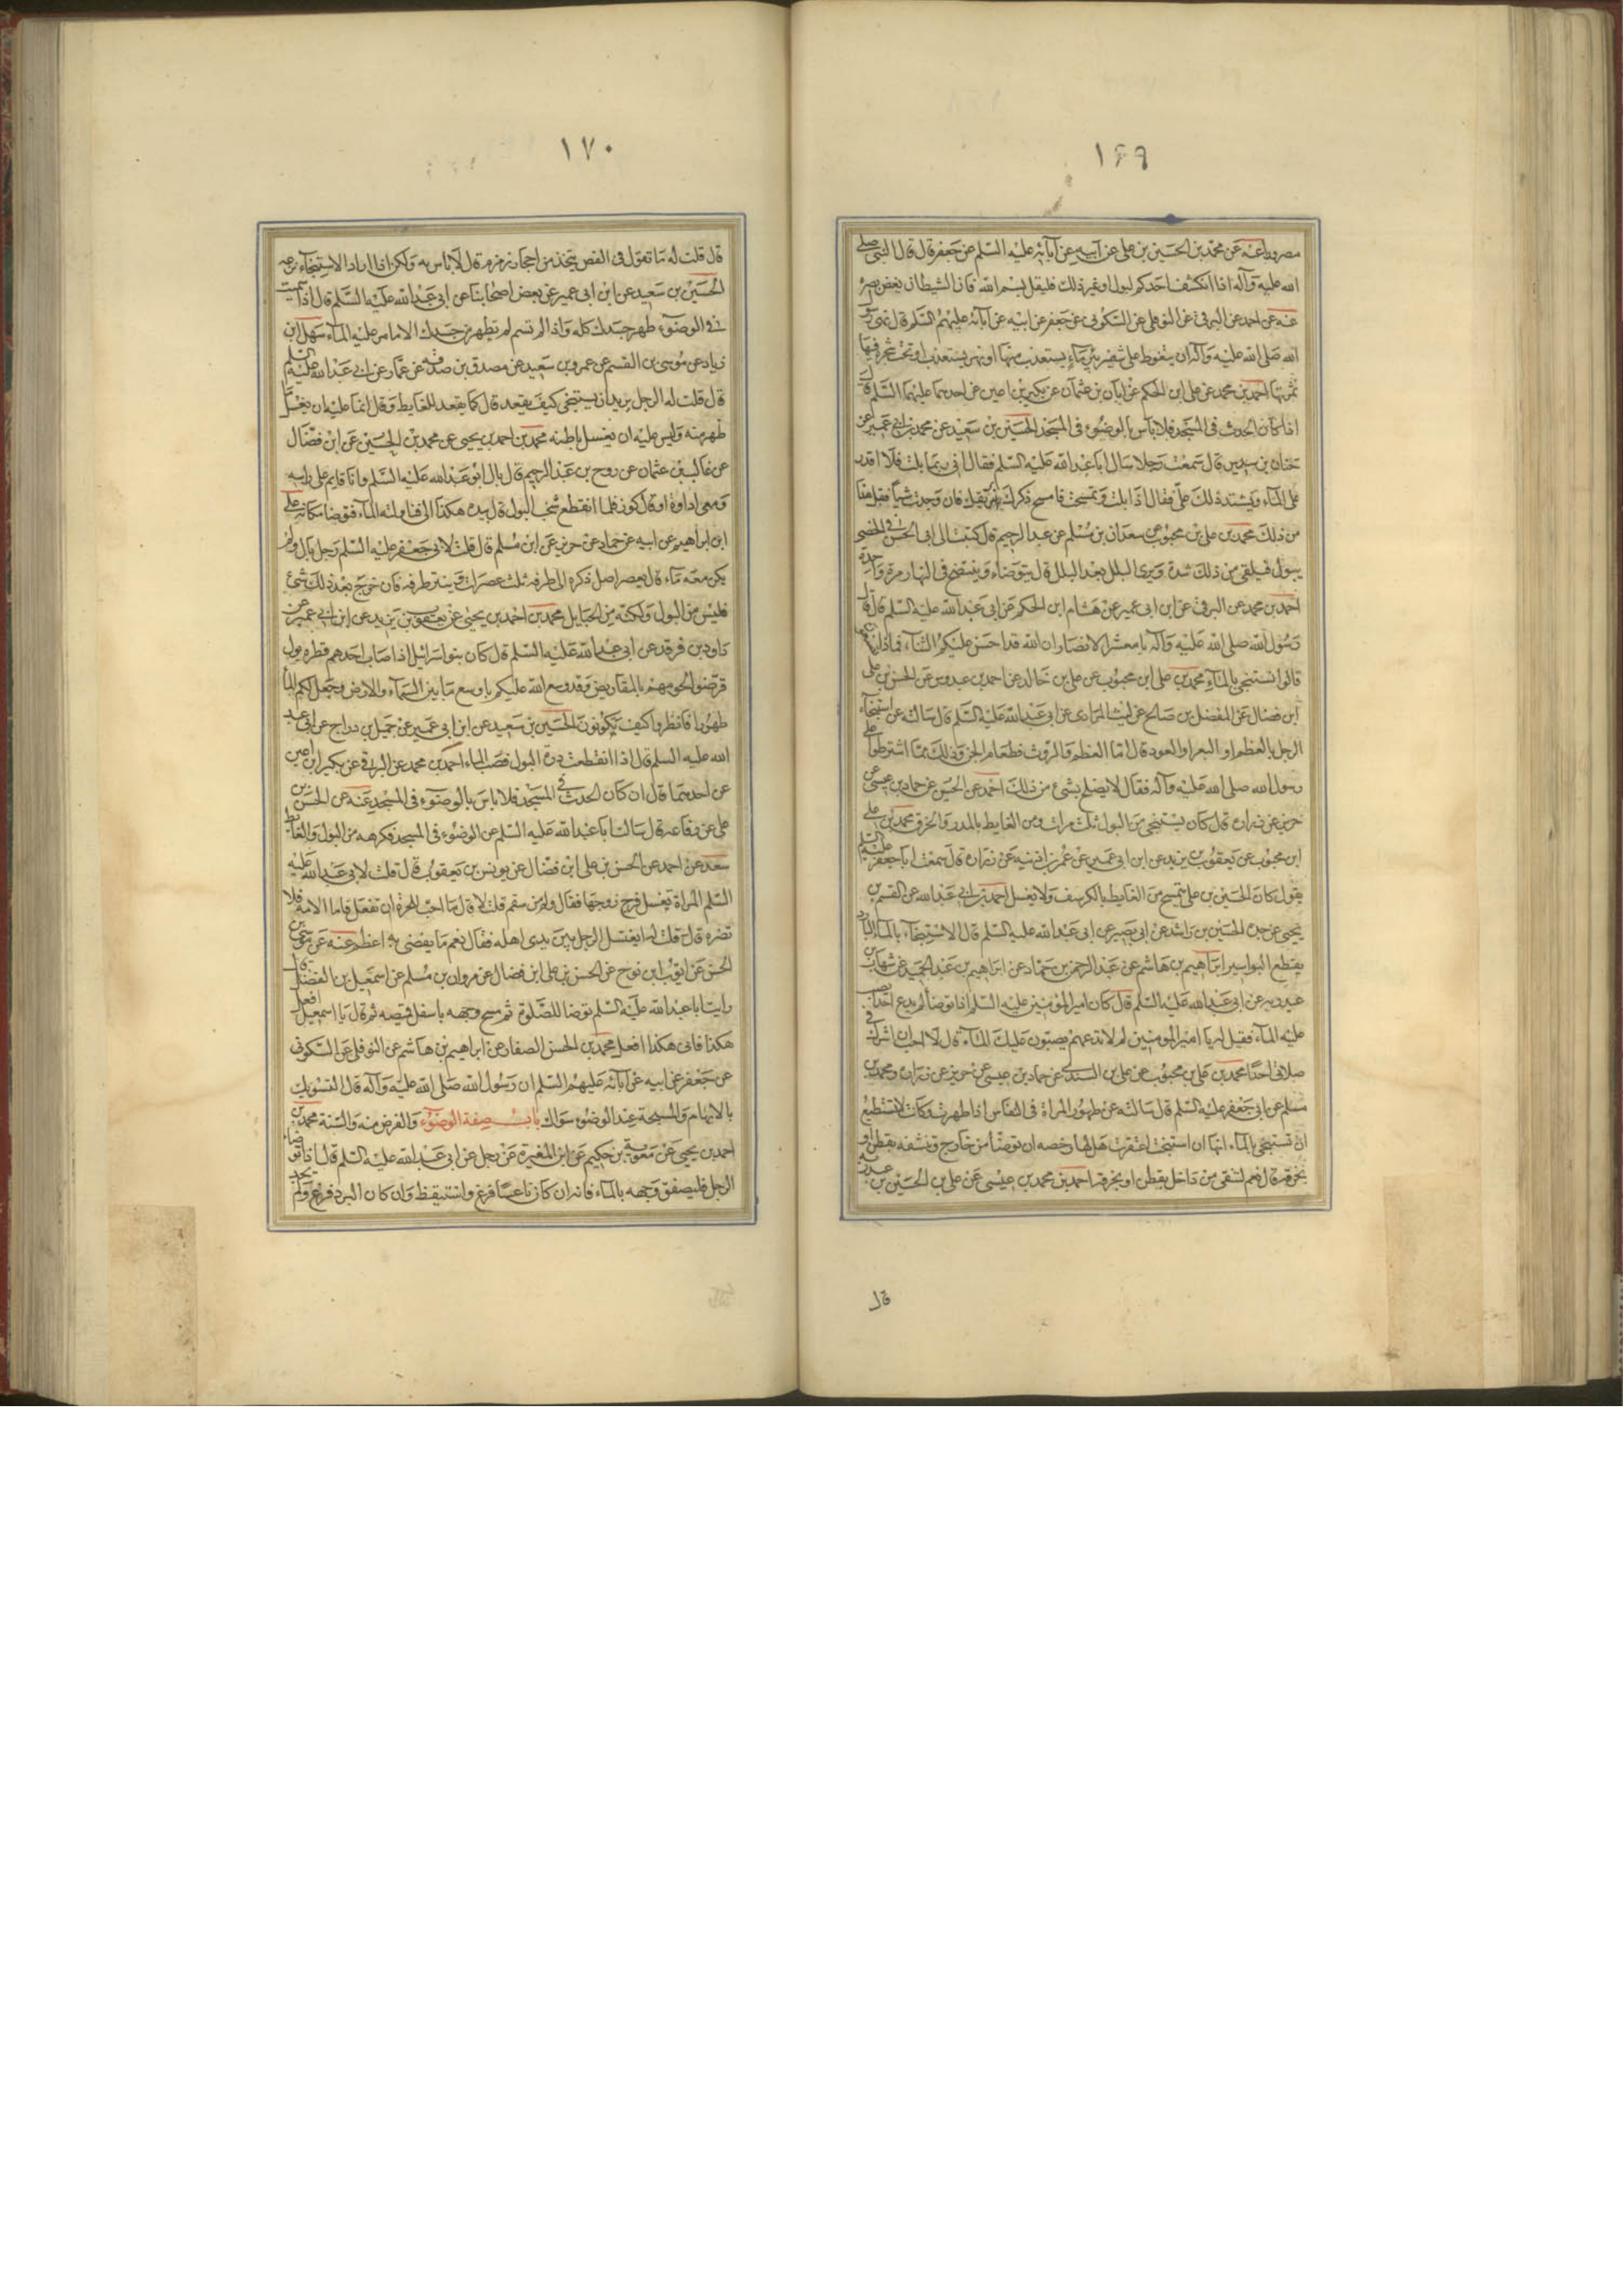 ١٦٩
مصروفا عنه عن محمد بن الحسين بن علي عن ابيه عن آبائه عليه السلم عن جعفر قال قال النبي صلى
الله عليه وآله اذا انكشف احدكم لبول او غير ذلك فليقل بسم الله فان الشيطان يغض بصره
عنه عن احمد عن البرقي عن النوفلي عن السكوني عن جعفر عن ابيه عن آبائه عليهم السلم قال نهى رسول
الله صلى الله عليه وآله ان يتغوط على شفير بئر ماء يستعذب منها او نهر يستعذب او تحت شجرة فيها
ثمرتها احمد بن محمد عن علي ابن الحكم عن ابان بن عثمان عن بكير بن اعين عن احدهما عليهما السلم قال
اذا كان الحدث في المسجد فلا باس بالوضوء في المسجد الحسين بن سعيد عن محمد بن ابي عمير عن
حنان بن سدير قال سمعت رجلا سال ابا عبد الله عليه السلم فقال اني ربما بلت فلا اقدر
على الماء ويشتد ذلك علي فقال اذا بلت وتمسحت فامسح ذكرك بريقك فان وجدت شيأ فقل هذا
من ذلك محمد بن علي بن محبوب عن سعدان بن مسلم عن عبد الرحيم قال كتبت الى ابي الحسن في الخصي
يبول فيلقى من ذلك شدة ويرى البلل بعد البلل قال يتوضاء وينتضح في النهار مرة واحدة
احمد بن محمد عن البرقي عن ابن ابي عمير عن هشام ابن الحكم عن ابي عبد الله عليه السلم قال قال
رسول الله صلى الله عليه وآله يا معشر الانصار ان الله قد احسن عليكم الثناء فماذا تصنعون
قالوا نستنجي بالماء محمد بن علي ابن محبوب عن علي بن خالد عن احمد بن عبدوس عن الحسن بن علي
ابن فضال عن المفضل بن صالح عن ليث المرادي عن ابي عبد الله عليه السلم قال سالته عن استنجاء
الرجل بالعظم او البعر او العود قال اما العظم والروث فطعام الجن وذلك مما اشترطوا على
رسول الله صلى الله عليه وآله فقال لا يصلح بشئ من ذلك احمد عن الحسين عن حماد بن عيسى عن
حريز عن زرارة قال كان يستنجي من البول ثلث مرات ومن الغايط بالمدر والخرق محمد بن علي
ابن محبوب عن يعقوب بن يزيد عن ابن ابي عمير عن عمر بن اذينه عن زرارة قال سمعت ابا جعفر عليه السلم
يقول كان الحسين بن علي يتمسح من الغايط بالكرسف ولا يغسل احمد بن ابي عبد الله عن القسم بن
يحيى عن جده الحسن بن راشد عن ابي بصير عن ابي عبد الله عليه السلم قال الاستنجاء بالماء البارد
يقطع البواسير ابراهيم بن هاشم عن عبد الرحمن بن حماد عن ابراهيم بن عبد الحميد عن شهاب بن
عبد ربه عن ابي عبد الله عليه السلم قال كان امير المؤمنين عليه السلم اذا توضأ لم يدع احدا يصب
عليه الماء فقيل له يا امير المؤمنين لم لا تدعهم يصبون عليك الماء قال لا احب ان اشرك في
صلاتي احدا محمد بن علي بن محبوب عن علي بن السندي عن حماد بن عيسى عن حريز عن زرارة ومحمد بن
مسلم عن ابي جعفر عليه السلم قال سالته عن طهور المراة في النفاس اذا طهرت وكانت لا تستطيع
ان تستنجي بالماء انها ان استنجت اعتقرت هل لها رخصه ان توضأ من خارج وتنشفه بقطن او
بخرقة قال نعم لتنقي من داخل بقطن او بخرقة احمد بن محمد بن عيسى عن علي بن الحسين بن عبد ربه
قال
١٧٠
قال قلت له ما تقول في الفص يتخذ من احجار زمزم قال لا باس به ولكن اذا اراد الاستنجاء نزعه
الحسين بن سعيد عن ابن ابي عمير عن بعض اصحابنا عن ابي عبد الله عليه السلم قال اذا سميت
في الوضوء طهر جسدك كله واذا لم تسم لم تطهر من جسدك الا ما مر عليه الماء سهل ابن
زياد عن موسى بن القسم عن عمرو بن سعيد عن مصدق بن صدقه عن عمار عن ابي عبد الله عليه السلم
قال قلت له الرجل يريد ان يستنجي كيف يقعد قال كما يقعد للغايط وقال انما عليه ان يغسل ما
ظهر منه وليس عليه ان يغسل باطنه محمد بن احمد بن يحيى عن محمد بن الحسين عن ابن فضال
عن غالب بن عثمان عن روح بن عبد الرحيم قال بال ابو عبد الله عليه السلم وانا قايم على راسه
ومعي اداوة او قال كوز فلما انقطع شخب البول قال بيده هكذا الي فناولته الماء فتوضا مكانه علي
ابن ابراهيم عن ابيه عن حماد عن حريز عن ابن مسلم قال قلت لابي جعفر عليه السلم رجل بال ولم
يكن معه ماء قال يعصر اصل ذكره الى طرفه ثلث عصرات وينتر طرفه فان خرج بعد ذلك شئ
فليس من البول ولكنه من الحبايل محمد بن احمد بن يحيى عن يعقوب بن يزيد عن ابن ابي عمير عن
داود بن فرقد عن ابي عبد الله عليه السلم قال كان بنو اسرائيل اذا اصاب احدهم قطره بول
قرضوا لحومهم بالمقاريض وقد وسع الله عليكم باوسع ما بين السماء والارض وجعل لكم الماء
طهورا فانظروا كيف تكونون الحسين بن سعيد عن ابن ابي عمير عن جميل بن دراج عن ابي عبد
الله عليه السلم قال اذا انقطعت درة البول فصب الماء احمد بن محمد عن البرقي عن بكير ابن اعين
عن احدهما قال ان كان الحدث في المسجد فلا باس بالوضوء في المسجد عنه عن الحسن بن
علي عن رفاعه قال سالت ابا عبد الله عليه السلم عن الوضوء في المسجد فكرهه من البول والغايط
سعد عن احمد عن الحسن بن علي ابن فضال عن يونس بن يعقوب قال قلت لابي عبد الله عليه
السلم المراة تغسل فرج زوجها فقال ولم من سقم قلت لا قال ما احب للحرة ان تفعل فاما الامة فلا
تضره قال قلت له ايغتسل الرجل بين يدي اهله فقال نعم ما يفضي به اعظم عنه عن موسى بن
الحسن عن ايوب ابن نوح عن الحسن بن علي ابن فضال عن مروان بن مسلم عن اسمعيل بن الفضل قال
رايت ابا عبد الله عليه السلم توضا للصلوة ثم مسح وجهه باسفل قميصه ثم قال يا اسمعيل افعل
هكذا فاني هكذا افعل محمد بن الحسن الصفار عن ابراهيم بن هاشم عن النوفلي عن السكوني
عن جعفر عن ابيه عن آبائه عليهم السلم ان رسول الله صلى الله عليه وآله قال التسويك
بالابهام والمسبحة عند الوضوء سواك باب صفة الوضوء والفرض منه والسنة محمد بن
احمد بن يحيى عن معوية بن حكيم عن ابن المغيرة عن رجل عن ابي عبد الله عليه السلم قال اذا توضاء
الرجل فليصفق وجهه بالماء فانه ان كان ناعسا فزع واستيقظ وان كان البرد فزع ولم يجد